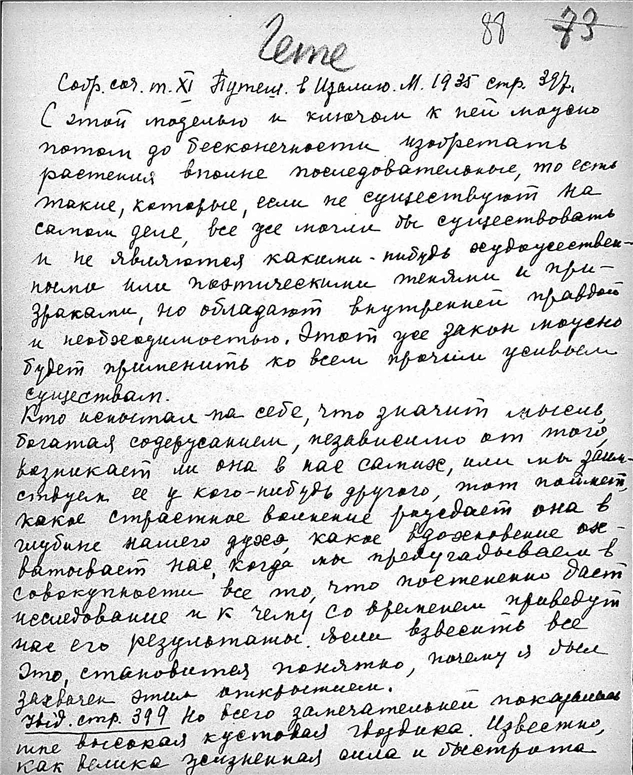 88 73
Гете
Собр. соч. т. XI Путеш. в Италию. М. 1935 стр. 397.
С этой моделью и ключом к ней можно
потом до бесконечности изобретать
растения вполне последовательные, то есть
такие, которые, если не существуют на
самом деле, все же могли бы существовать
и не являются какими-нибудь художествен-
ными или поэтическими тенями и при-
зраками, но обладают внутренней правдой
и необходимостью. Этот же закон можно
будет применить ко всем прочим живым
существам.
Кто испытал на себе, что значит мысль,
богатая содержанием, независимо от того,
возникает ли она в нас самих, или мы заим-
ствуем ее у кого-нибудь другого, тот поймет,
какое страстное волнение рождает она в
глубине нашего духа, какое вдохновение ох-
ватывает нас, когда мы предугадываем в
совокупности все то, что постепенно даст
исследование и к чему со временем приведут
нас его результаты. Если взвесить все
это, становится понятно, почему я был
захвачен этим открытием.
Ibid. стр. 399 Но всего замечательней показалась
мне высокая кустовая гвоздика. Известно,
как велика жизненная сила и быстрота